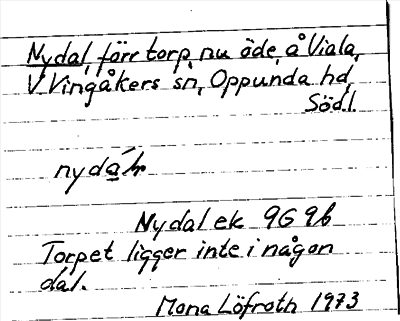 Nydal, förr torp, nu öde, å Viala,
V. Vingåkers sn, Oppunda hd,
Södl.
Nydal ek 9G 9b
Torpet ligger inte i någon
dal.
Mona Löfroth 1973